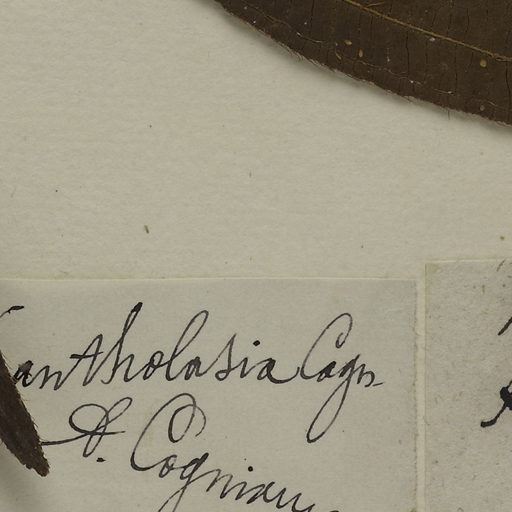 antholasia Cogn.
A. Cogniau